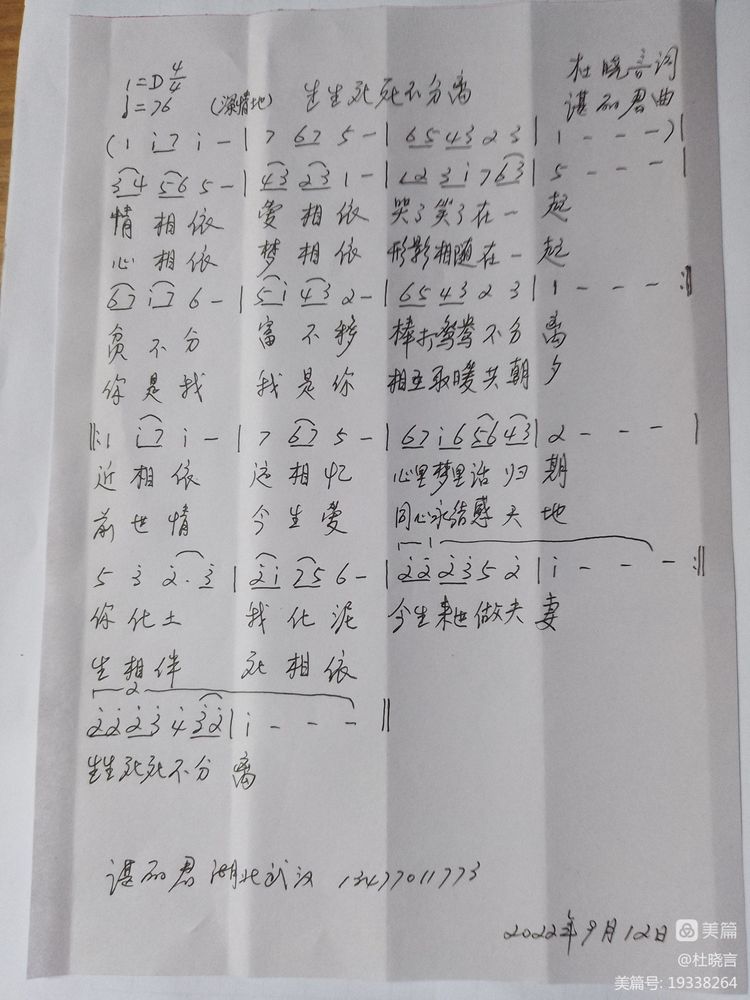 1=D 4/4
♩=76 (深情地) 生生死死不分离 杜晓言词
谌丽君曲
(1 i7 i - | 7 67 5 - | 65 43 2 3 | 1 - - - )|
34 56 5 - | 43 23 1 - | 12 3 i 7 63 | 5 - - - |
情相依 爱相依 哭了笑了在一起
心相依 梦相依 形影相随在一起
67 i7 6 - | 5i 43 2 - | 65 43 2 3 | 1 - - - :||
贫不分 富不移 棒打鸳鸯不分离
你是我 我是你 相互取暖共朝夕
||: 1 i7 i - | 7 67 5 - | 67 i6 56 43 | 2 - - - |
近相依 远相忆 心里梦里话归期
前世情 今生爱 同心永结感天地
5 3̇ 2̇. 3̇ | 2̇i 75 6 - | 2̇2̇ 2̇3̇ 5 2̇ | i - - - :||
你化土 我化泥 今生来世做夫妻
生相伴 死相依
2
2̇2̇ 2̇3̇ 4 3̇2̇ | i - - - ||
生生死死不分离
谌丽君湖北武汉 13477011773
2022年9月12日
美篇
@杜晓言
美篇号: 19338264